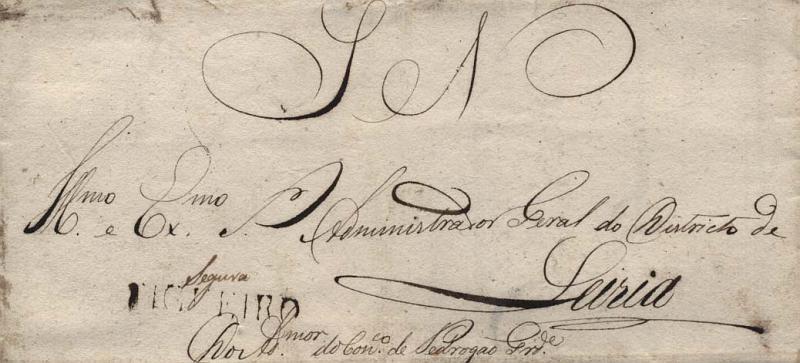 S N
Illmo e Exmo Sr. Administrador Geral do Districto de
Leiria
Segura
FIGUEIRO
Do Admor do Conco. de Pedrogao Grde